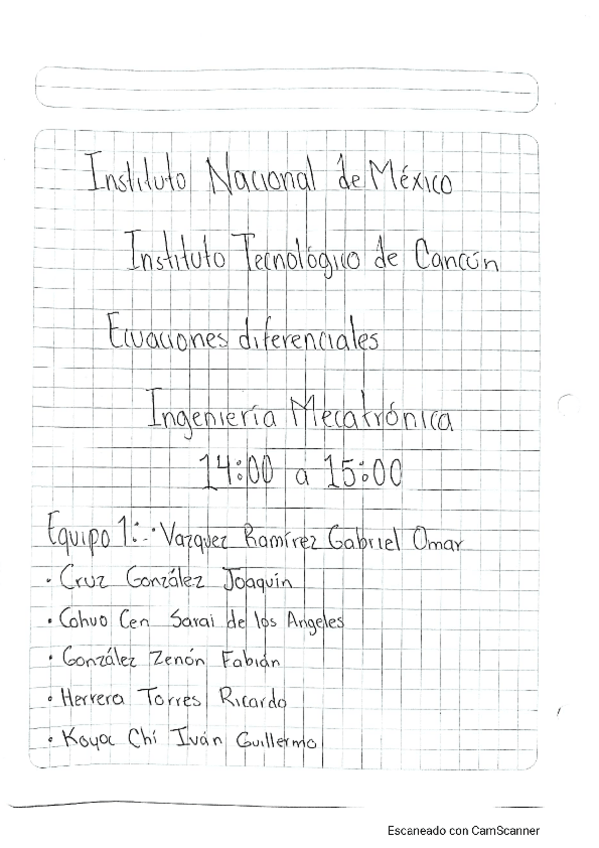 Instituto Nacional de México
Instituto Tecnológico de Cancún
Ecuaciones diferenciales
Ingeniería Mecatrónica
14:00 a 15:00
Equipo 1: · Vazquez Ramírez Gabriel Omar
· Cruz González Joaquín
· Cohuo Cen Sarai de los Angeles
· González Zenón Fabián
· Herrera Torres Ricardo
· Koyoc Chi Iván Guillermo
Escaneado con CamScanner